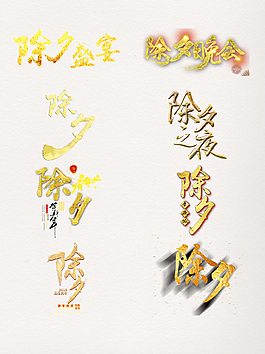 除夕盛宴
除夕晚会
除夕
除夕之夜
除夕
除夕
除夕
除夕